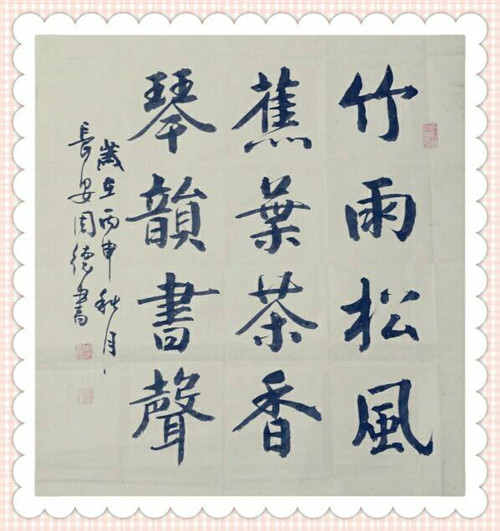 竹雨松風
蕉葉茶香
琴韻書聲
歲在丙申秋月
長安周德書